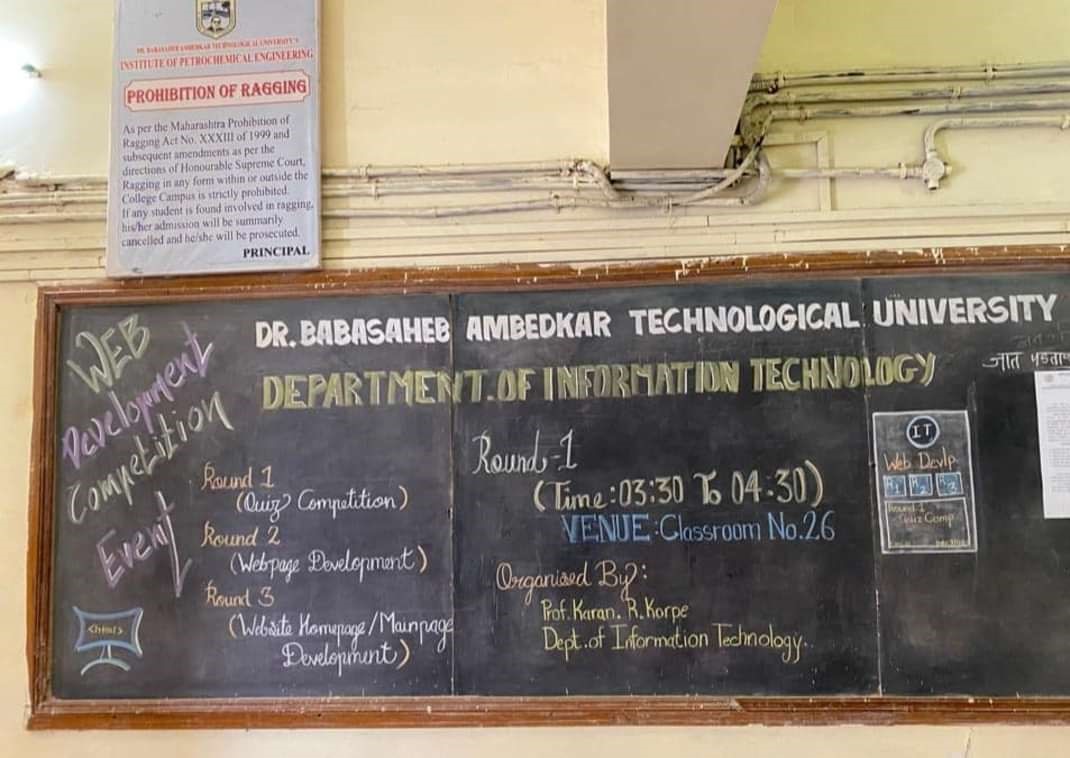 DR. BABASAHEB AMBEDKAR TECHNOLOGICAL UNIVERSITY'S
INSTITUTE OF PETROCHEMICAL ENGINEERING
PROHIBITION OF RAGGING
As per the Maharashtra Prohibition of
Ragging Act No. XXXIII of 1999 and
subsequent amendments as per the
directions of Honourable Supreme Court,
Ragging in any form within or outside the
College Campus is strictly prohibited.
If any student is found involved in ragging,
his/her admission will be summarily
cancelled and he/she will be prosecuted.
PRINCIPAL
DR. BABASAHEB AMBEDKAR TECHNOLOGICAL UNIVERSITY
DEPARTMENT. OF INFORMATION TECHNOLOGY
WEB
Development
Competition
Event
Round 1
(Quiz Competition)
Round 2
(Webpage Development)
Round 3
(Website Homepage/Mainpage
Development)
Round-1
(Time:03:30 To 04.30)
VENUE:Classroom No.26
Organised By:
Prof. Karan. R. Korpe
Dept. of Information Technology..
जात
IT
Web Devlp.
R1 R2 R3
Round 1
Quiz Comp